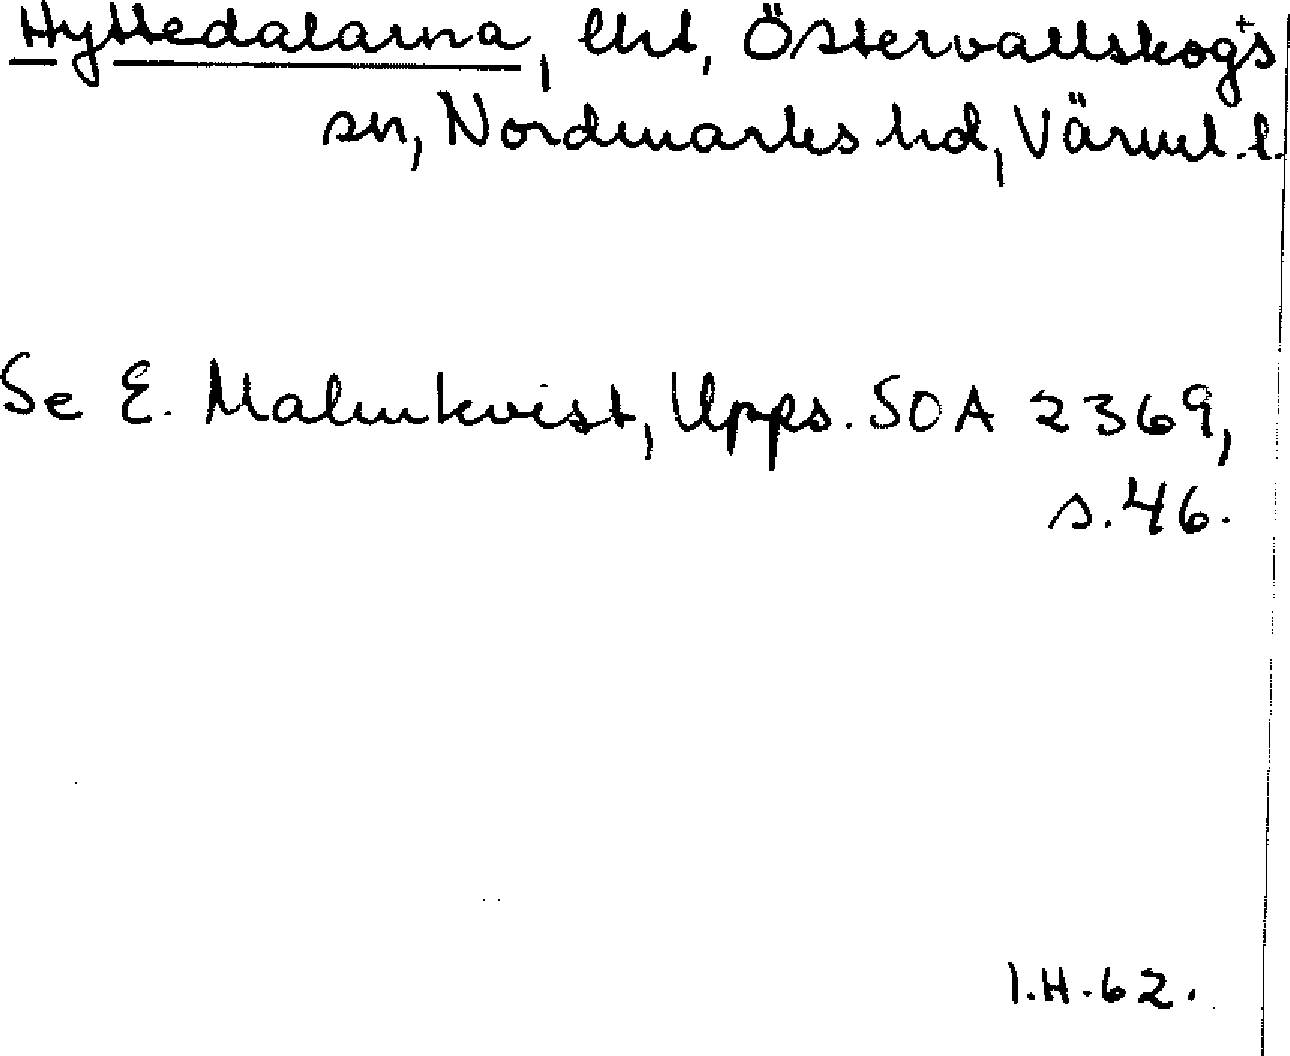 Hyttedalarna, lht, Östervallskogs
sn, Nordmarks hd, Värml. l.
Se E. Malmkvist, Upps. SOA 2369,
s. 46.
I.H. 62.